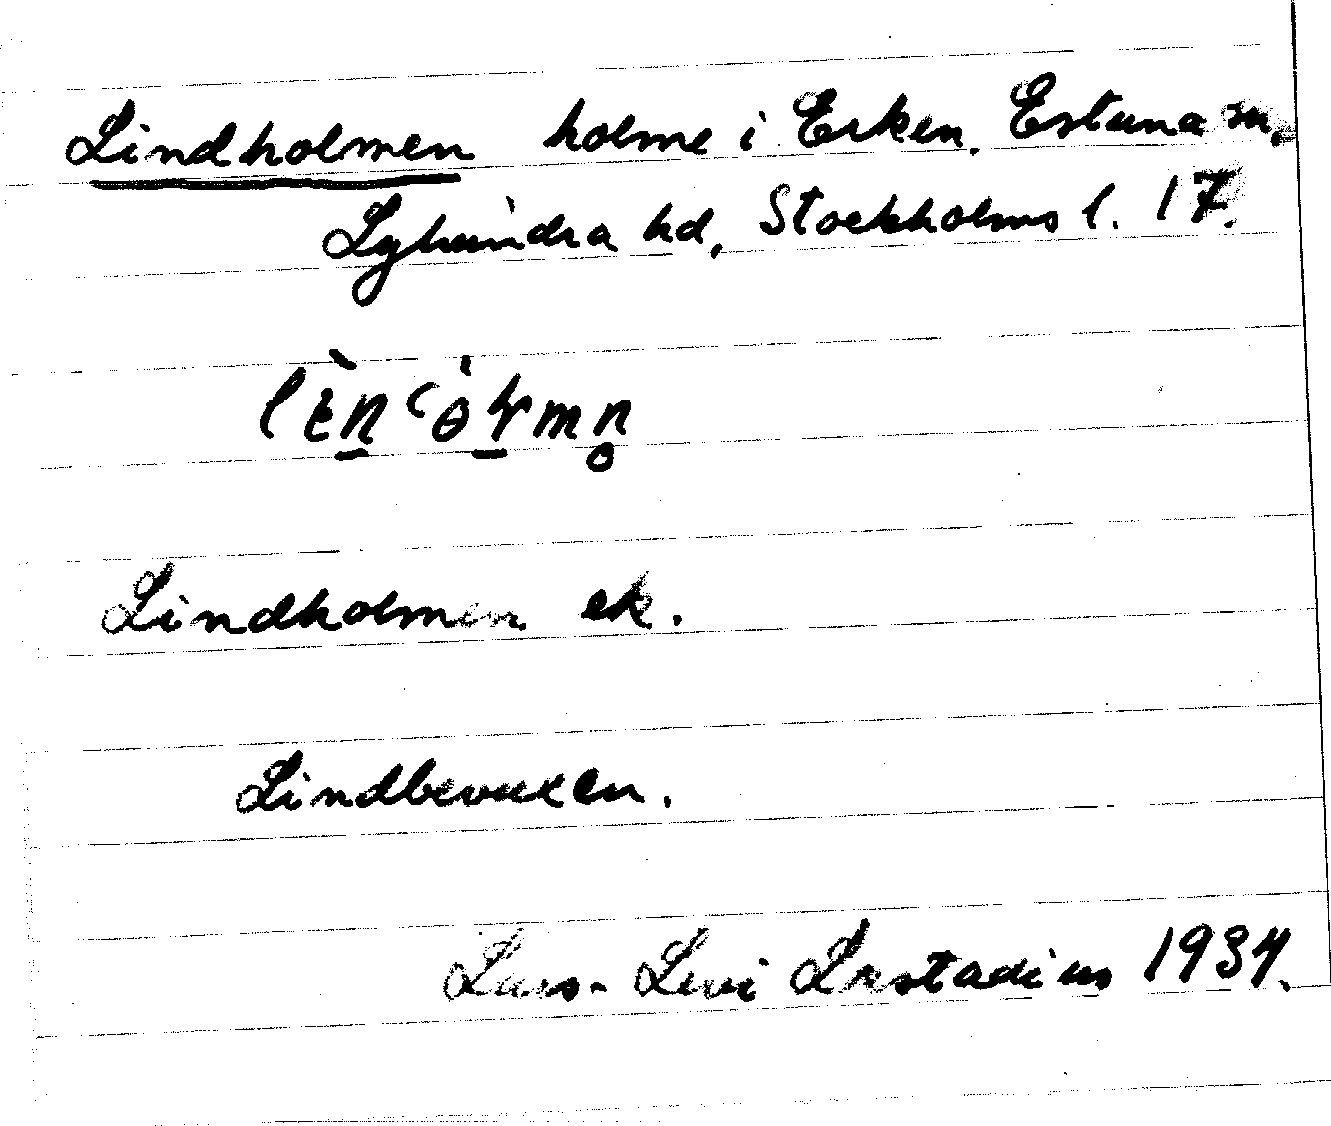 Lindholmen holme i Erken, Estuna sn,
Lyhundra hd, Stockholms l. 17.
Lindholmen ek.
Lindbevuxen.
Lars-Levi Læstadius 1934.